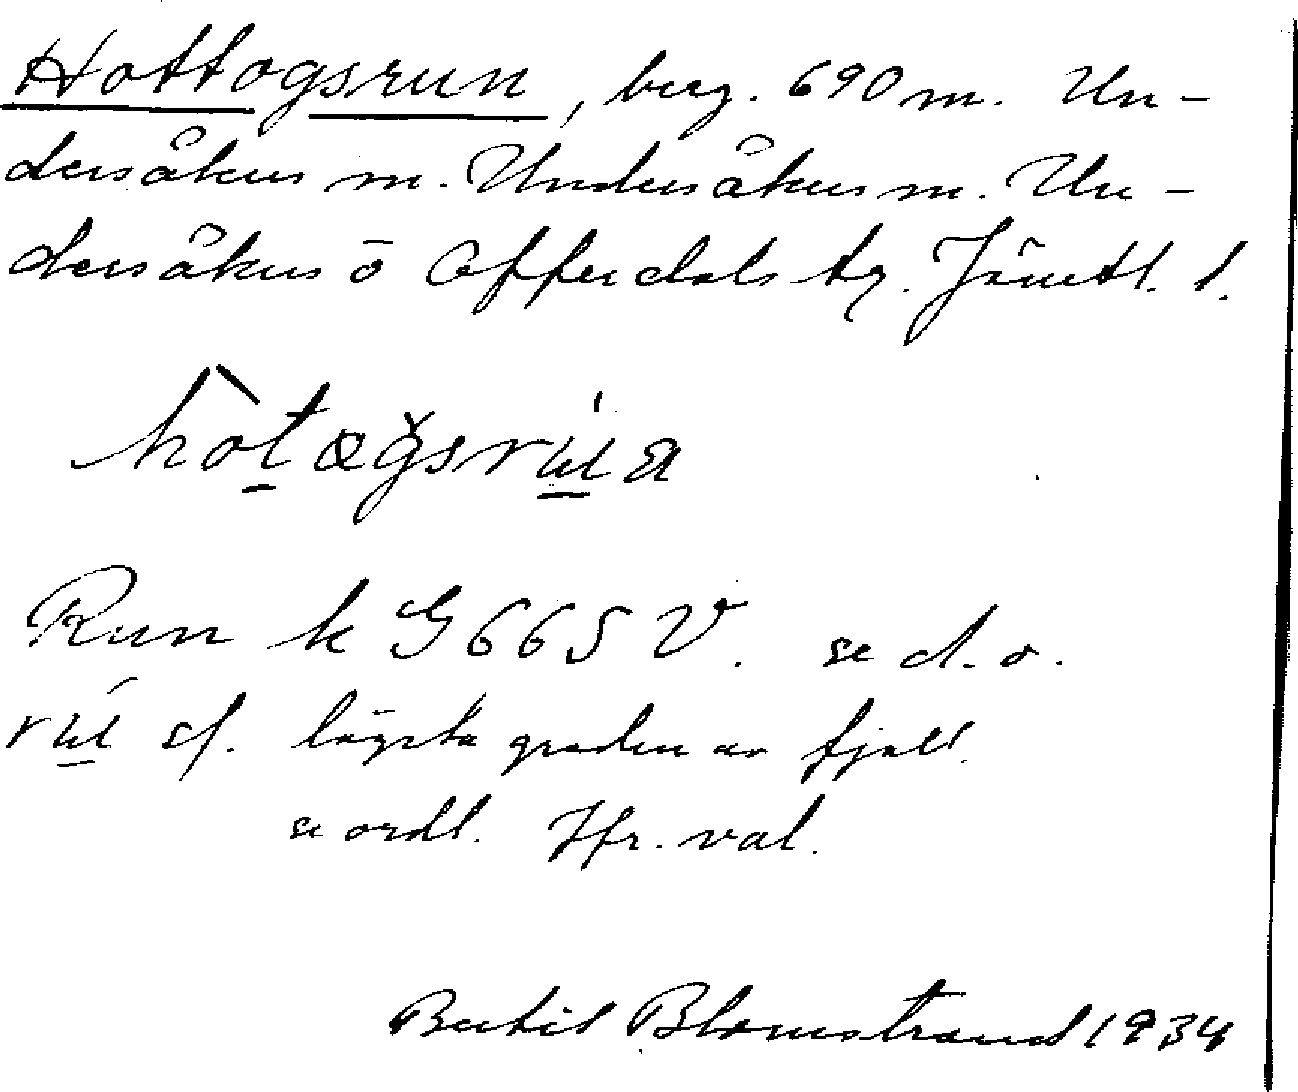 Hottogsrun, berg. 690 m. Un-
dersåkers m. Undersåkers m. Un-
dersåkers o Offerdals tg. Jämtl. l.
Run k G 665 V. se d. o.
sf. lägsta graden av fjäll.
se ordl. Jfr. val.
Bertil Blomstrand 1934